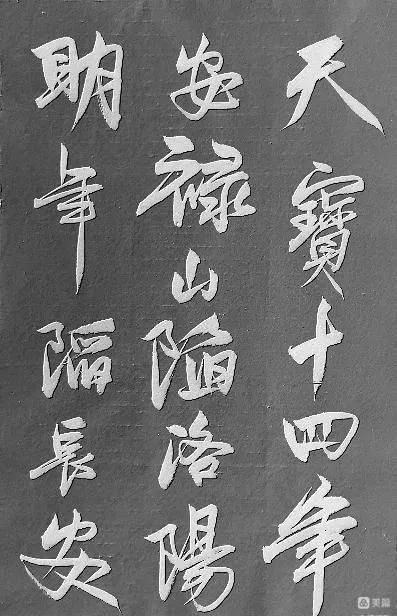 天寶十四年
安祿山陷洛陽
明年陷長安
美篇